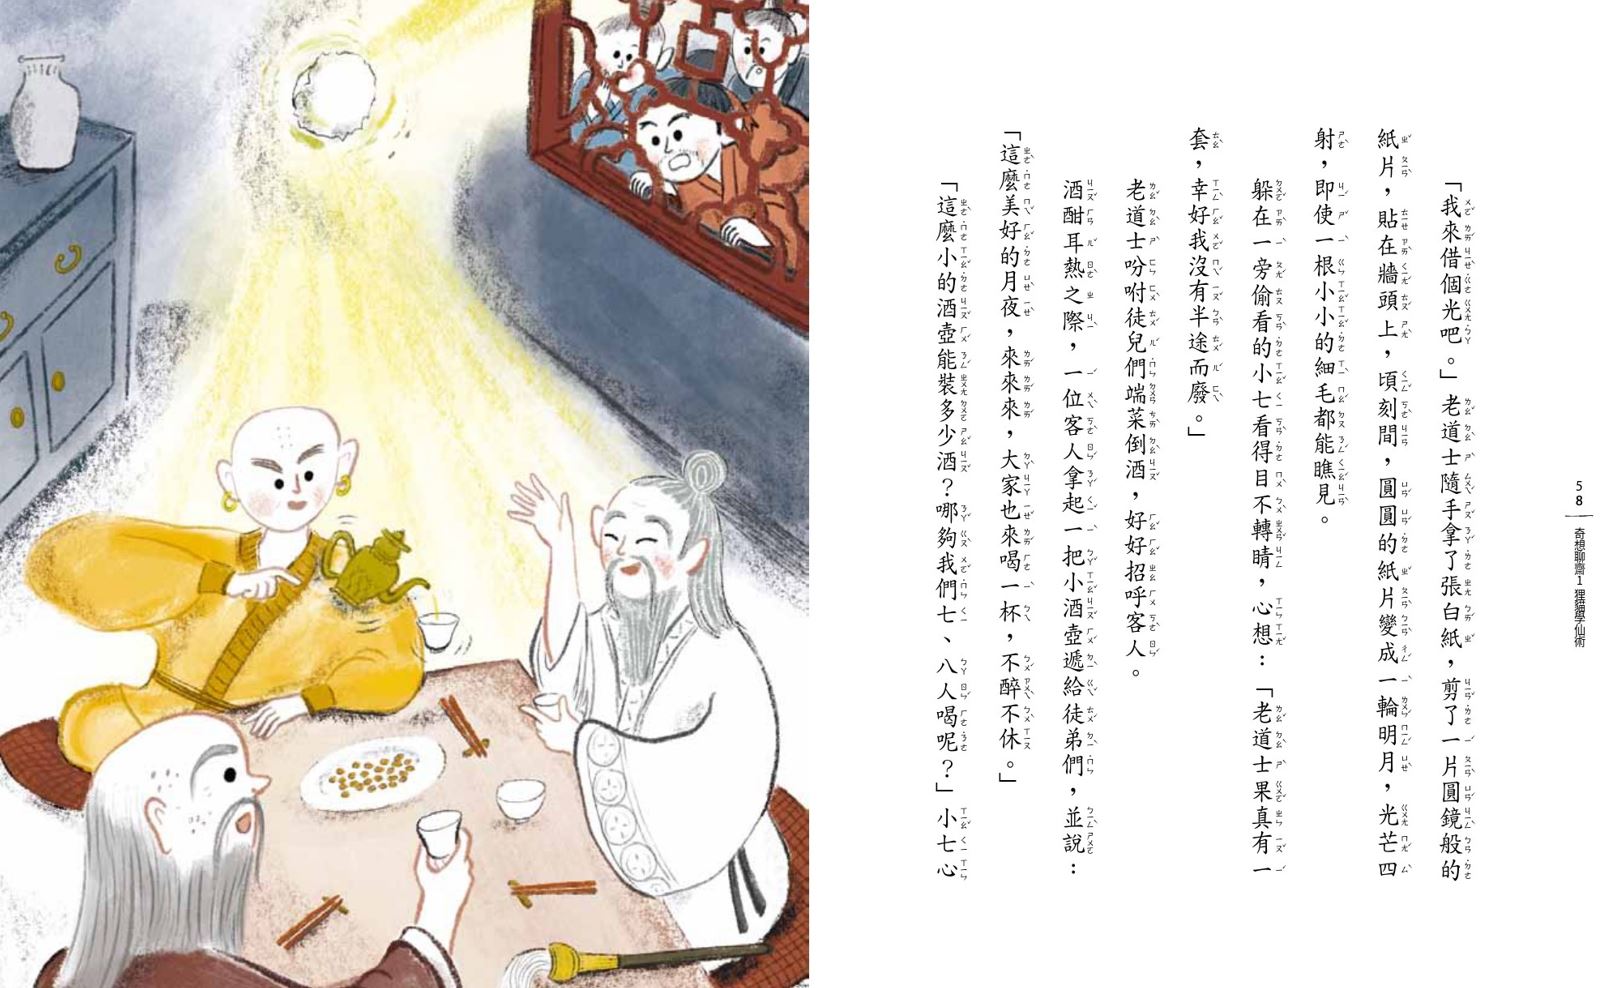 「我來借個光吧。」老道士隨手拿了張白紙，剪了一片圓鏡般的
紙片，貼在牆頭上，頃刻間，圓圓的紙片變成一輪明月，光芒四
射，即使一根小小的細毛都能瞧見。
躲在一旁偷看的小七看得目不轉睛，心想：「老道士果真有一
套，幸好我沒有半途而廢。」
老道士吩咐徒兒們端菜倒酒，好好招呼客人。
酒酣耳熱之際，一位客人拿起一把小酒壺遞給徒弟們，並說：
「這麼美好的月夜，來來來，大家也來喝一杯，不醉不休。」
「這麼小的酒壺能裝多少酒？哪夠我們七、八人喝呢？」小七心
58
奇想聊齋1 狸貓學仙術